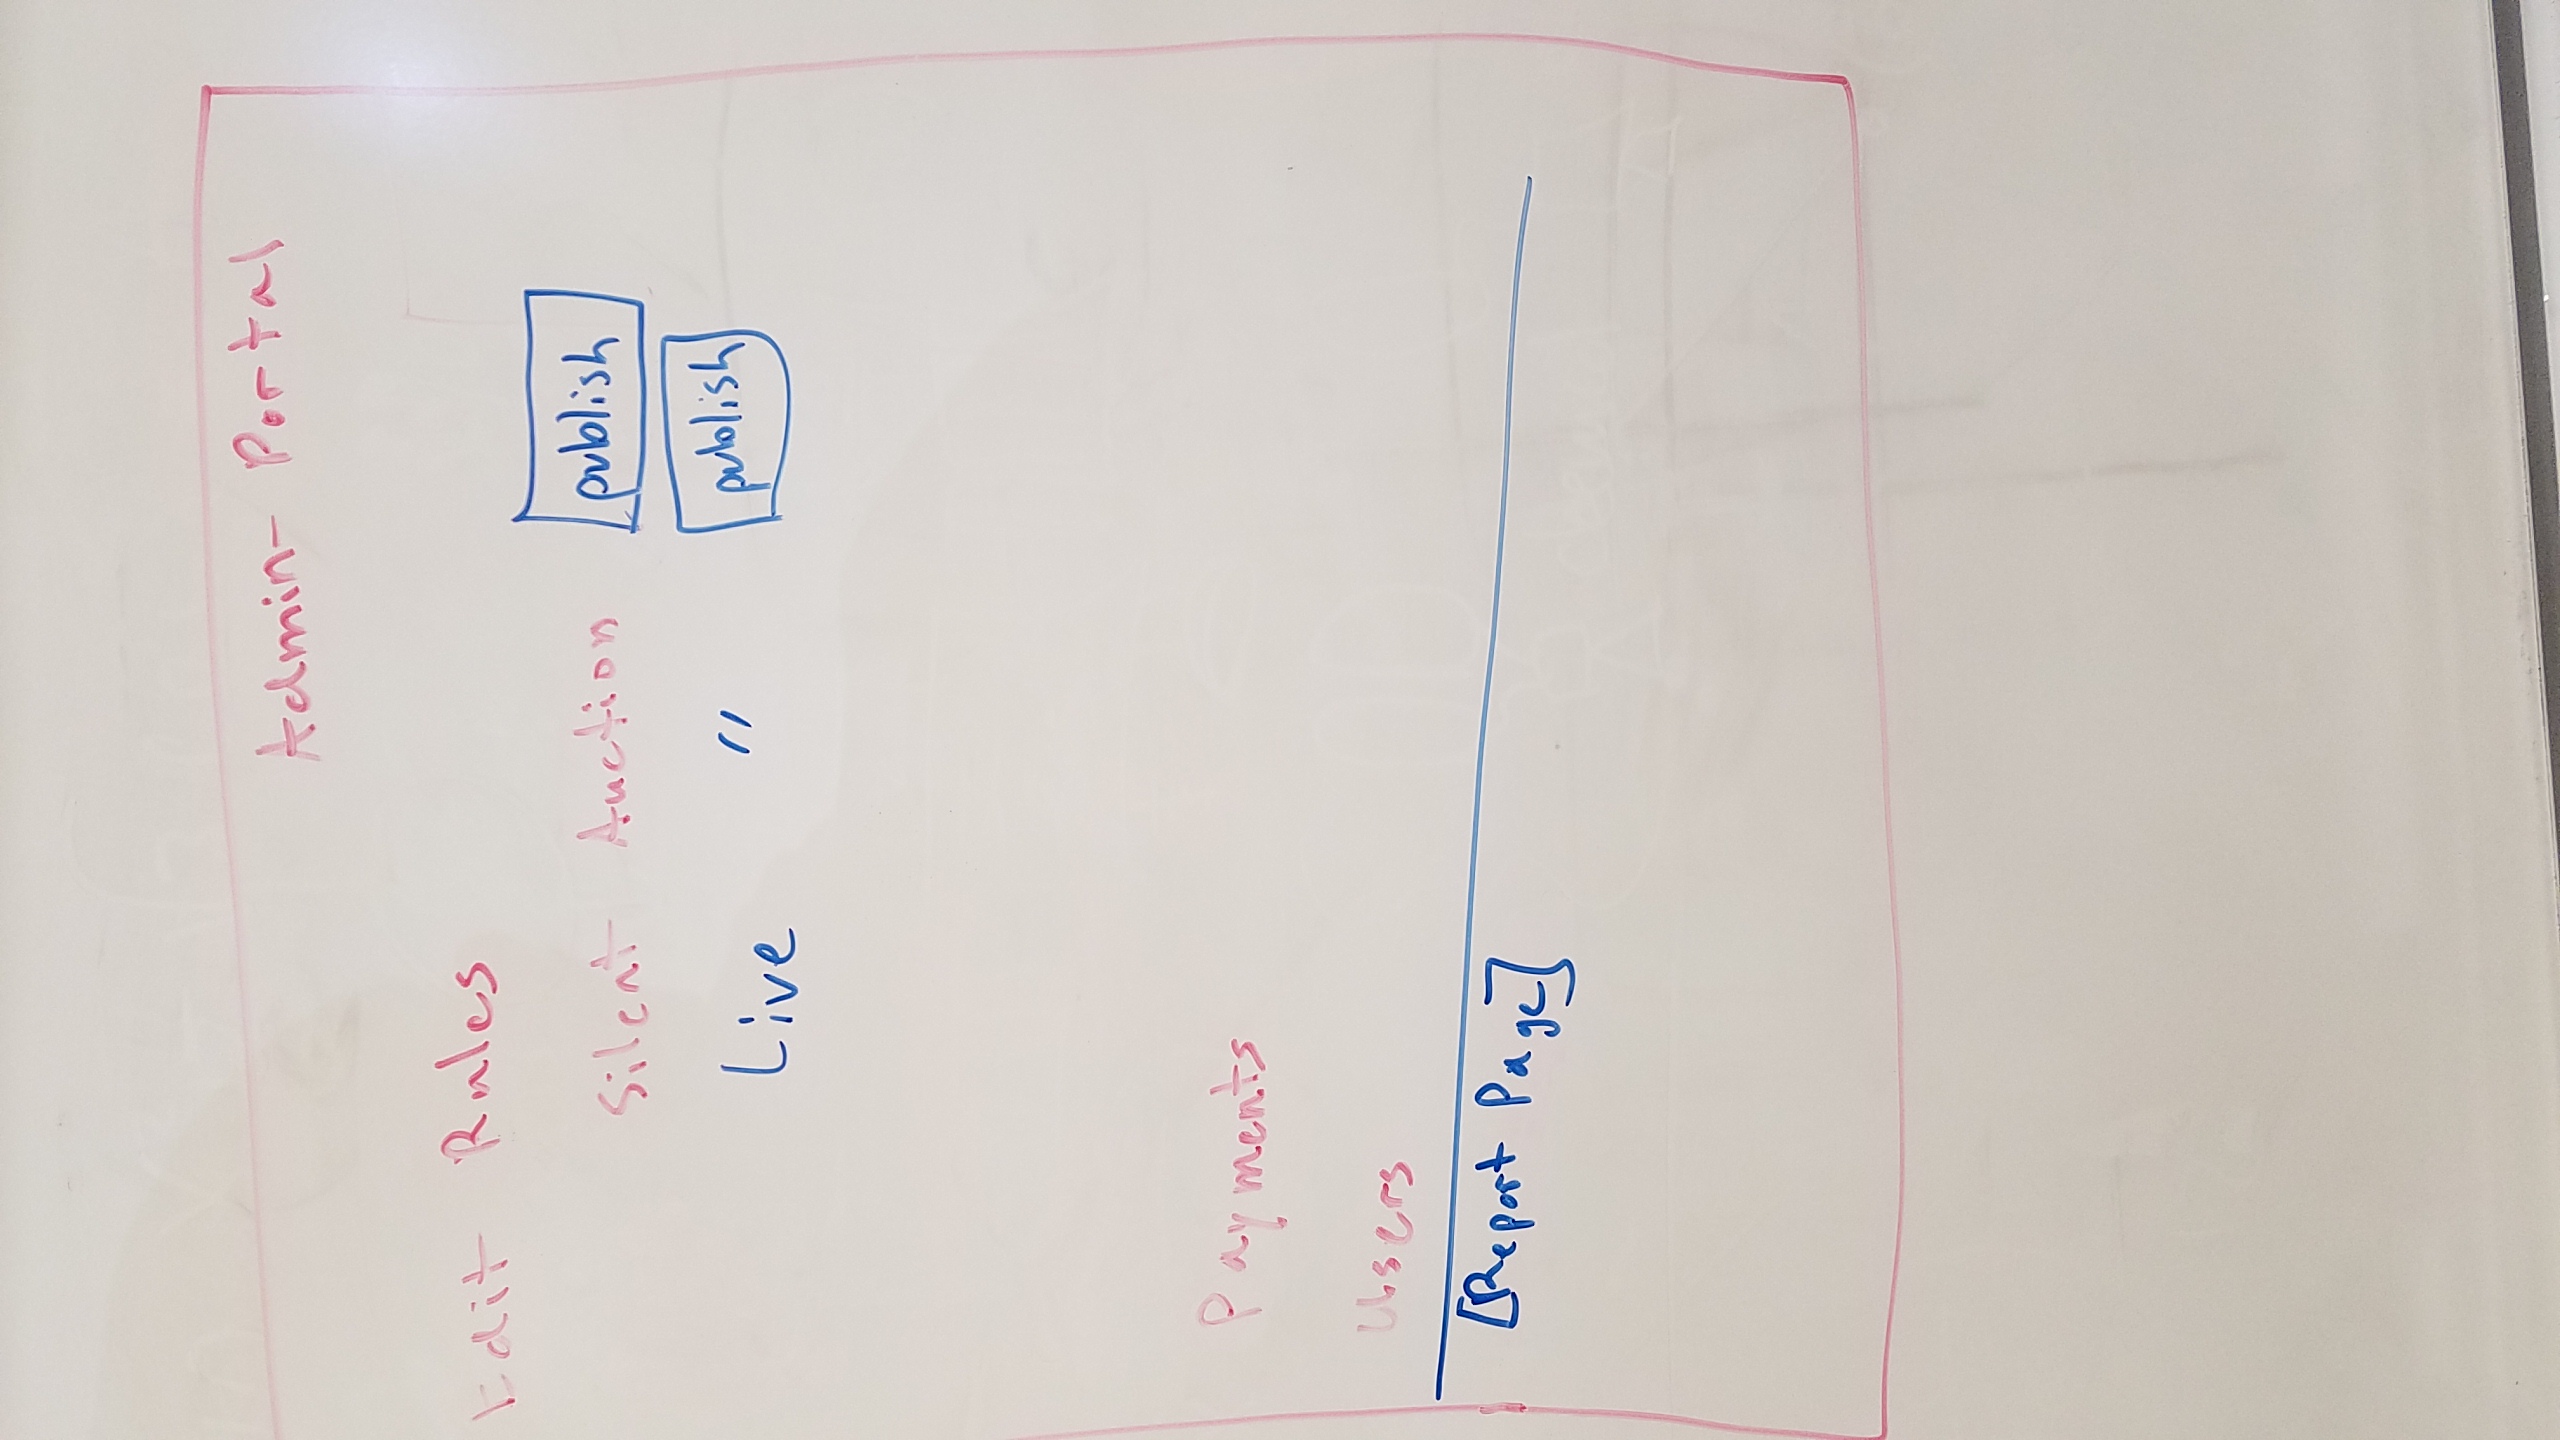 Admin- Portal
Edit Rules
Silent Auction publish
Live " publish
Payments
Users
[Report Page]